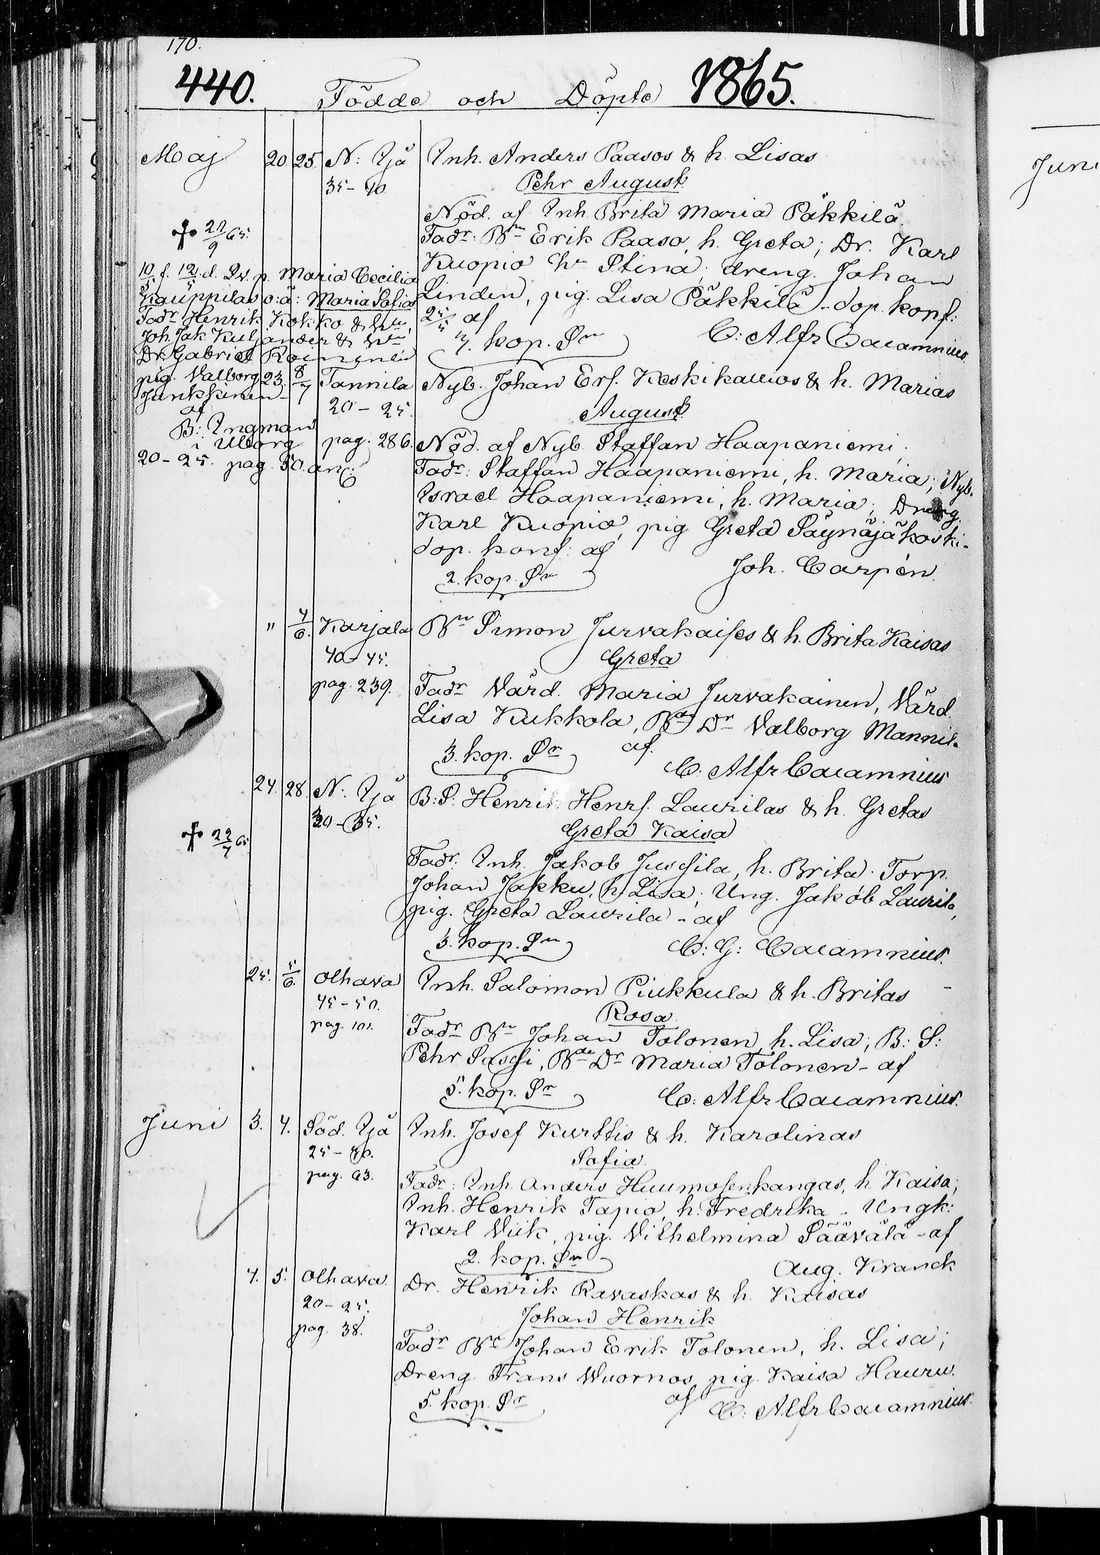 170.
440. Födde och Döpte 1865.
Maj 20 25. N: Ijå Inh. Anders Paasos & h. Lisas
35-40 Pehr August
Nöd. af Inh Brita Maria Päkkilä
Fadr: Bn Erik Paaso, h. Greta; Dr. Karl
Kuopio hu Stina dreng Johan
Linden, pig. Lisa Päkkilä - dop. konf.
25/5 af
C: Alfr Cajamnius
4. kop. Sn
† 21/9 65.
10/5 f. 12/5 d. Maria Cecilia
Kauppilas o: ä: Maria Sofia
Fadr Henrik Kokko & hu,
Joh Jak Kuljander & hu
Dr. Gabriel Roininen
pig. Valborg
Junkkinen -
af
B: Ingman
i Uleborg
20-25. pag. 50. anc:
23. 8/7 Tannila Nyb. Johan Erf. Keskikallios & h. Marias
20-25. August
pag. 286. Nöd. af Nyb Staffan Haapaniemi.
Fadr: Staffan Haapaniemi, h. Maria; Nyb.
Israel Haapaniemi, h. Maria; Dreng.
Karl Kuopio, pig Greta Säynäjäkoski -
dop. konf: af
Joh. Carpén.
2. kop. Sn
" 4/6. Karjala Bn Simon Jurvakaises & h. Brita Kaisas
40-45. Greta
pag. 239. Fadr Värd. Maria Jurvakainen, Värd.
Lisa Kukkola, Bde Dr Valborg Manni-
af
3. kop. Sn C. Alfr Cajamnius
24. 28. N: Ijå B.S. Henrik Henrs. Laurilas & h. Gretas
30-35. Greta Kaisa
† 22/7 65
Fadr: Inh. Jakob Jussila, h. Brita Torp.
Johan Jakku, h Lisa; Ung. Jakob Laurila,
pig. Greta Laurila - af
3. kop. Sn C: G: Cajamnius.
25. 5/6. Olhava Inh. Salomon Piukkula & h. Britas
45-50. Rosa
pag. 101. Fadr Bn Johan Tolonen, h. Lisa; B: S:
Pehr Sassi, Bde Dr Maria Tolonen - af
5. kop. Sr C: Alfr Cajamnius.
Juni 3. 4. Söd. Ijå Inh. Josef Kurttis & h. Karolinas
25-30. Sofia
pag. 63. Fadr: Inh Anders Huumosenkangas, h Kaisa;
Inh. Henrik Tapio, h. Fredrika - Ungk:
Karl Wiik, pig. Vilhelmina Päävälä - af
2. kop. Sn Aug. Kranck
4. 5. Olhava Dr. Henrik Ravaskas & h. Kaisas
20-25. Johan Henrik
pag. 38. Fadr Bn Johan Erik Tolonen, h. Lisa;
Dreng Frans Wuornos, pig. Kaisa Hauru.
5. kop. Sr af C: Alfr Cajamnius.
Juni